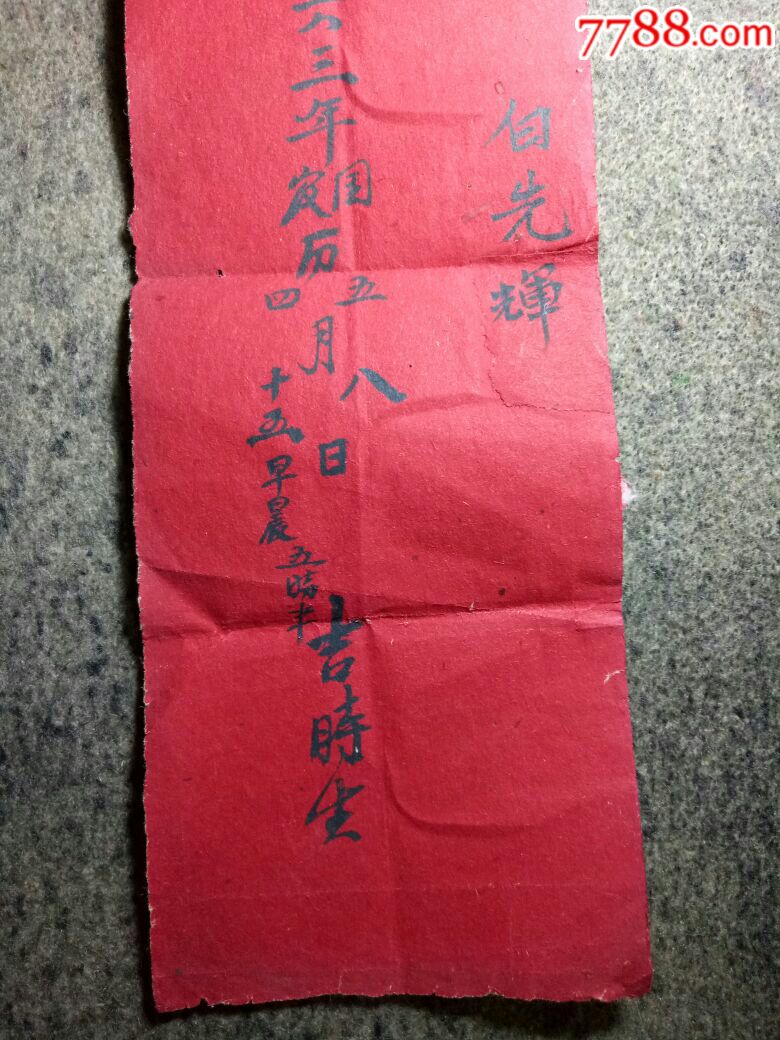 7788.com
白先輝
六三年
国
农历
五
四
月
八
十五
日
早晨五時半
吉時生